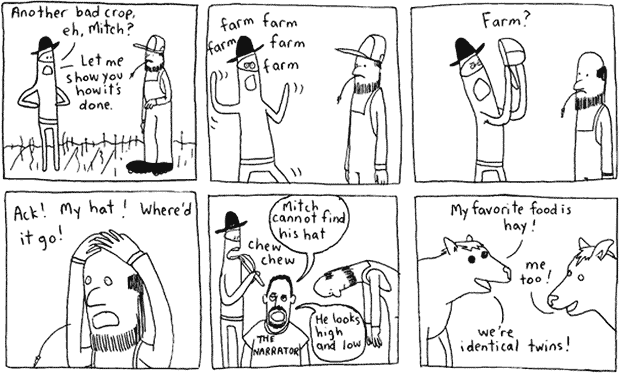 Another bad crop,
eh, Mitch?
Let me
show you
how it's
done.
farm farm
farm farm
farm
Farm?
Ack! My hat! Where'd
it go!
Mitch
cannot find
his hat
chew
chew
He looks
high
and low
THE
NARRATOR
My favorite food is
hay!
me
too!
we're
identical twins!